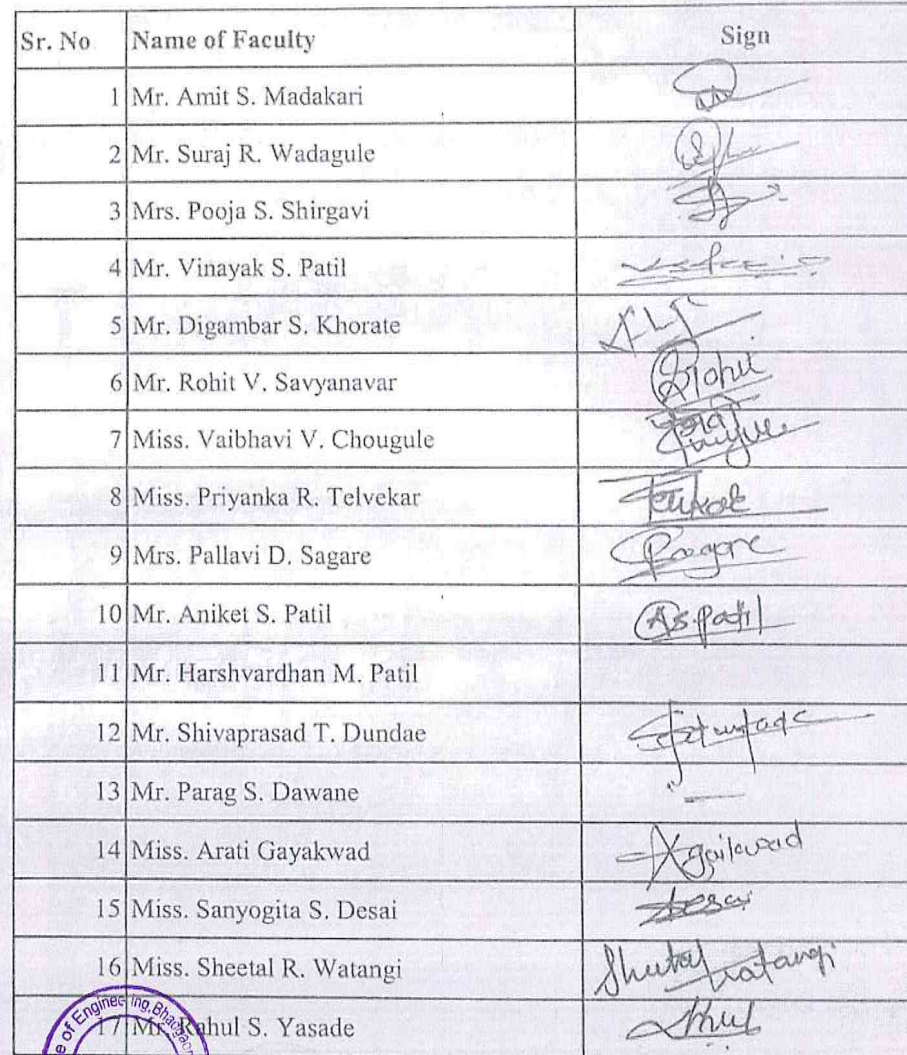 Sr. No Name of Faculty Sign
1 Mr. Amit S. Madakari
2 Mr. Suraj R. Wadagule
3 Mrs. Pooja S. Shirgavi
4 Mr. Vinayak S. Patil
5 Mr. Digambar S. Khorate
6 Mr. Rohit V. Savyanavar Rohit
7 Miss. Vaibhavi V. Chougule
8 Miss. Priyanka R. Telvekar
9 Mrs. Pallavi D. Sagare
10 Mr. Aniket S. Patil A.S.patil
11 Mr. Harshvardhan M. Patil
12 Mr. Shivaprasad T. Dundae
13 Mr. Parag S. Dawane
14 Miss. Arati Gayakwad
15 Miss. Sanyogita S. Desai Desai
16 Miss. Sheetal R. Watangi Sheetal watangi
17 Mr. Rahul S. Yasade
of Engineering,